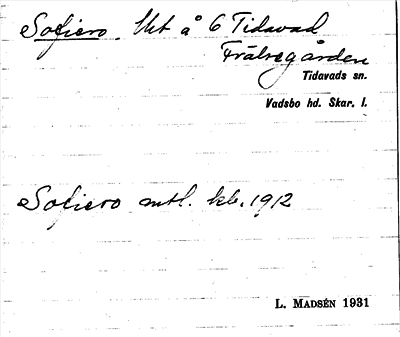 Sofiero. Utt å 6 Tidavad
Frälsegården
Tidavads sn.
Vadsbo hd. Skar. l.
Sofiero mtl. kb. 1912
L. MADSÉN 1931